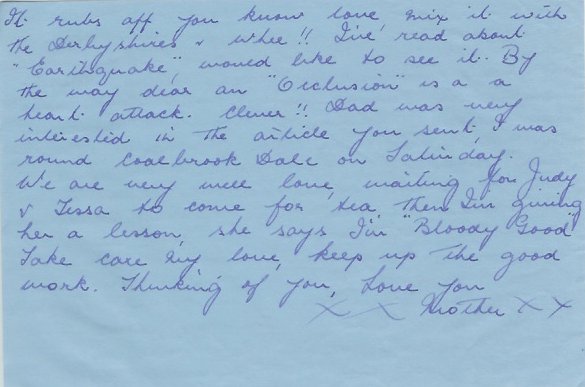 It rubs off you know love, mix it with
the Derbyshires & whee!! I've read about
"Earthquake", would like to see it. By
the way dear an "Occlusion" is a a
heart attack. Clever!! Dad was very
interested in the article you sent, I was
round Coalbrook Dale on Saturday.
We are very well love, waiting for Judy
& Tessa to come for tea, then I'm giving
her a lesson, she says I'm "Bloody Good"
Take care my love, keep up the good
work. Thinking of you, Love you
X X Mother X X